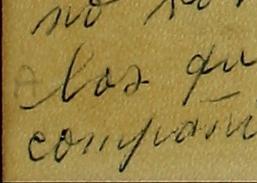 no
los qu
compañi